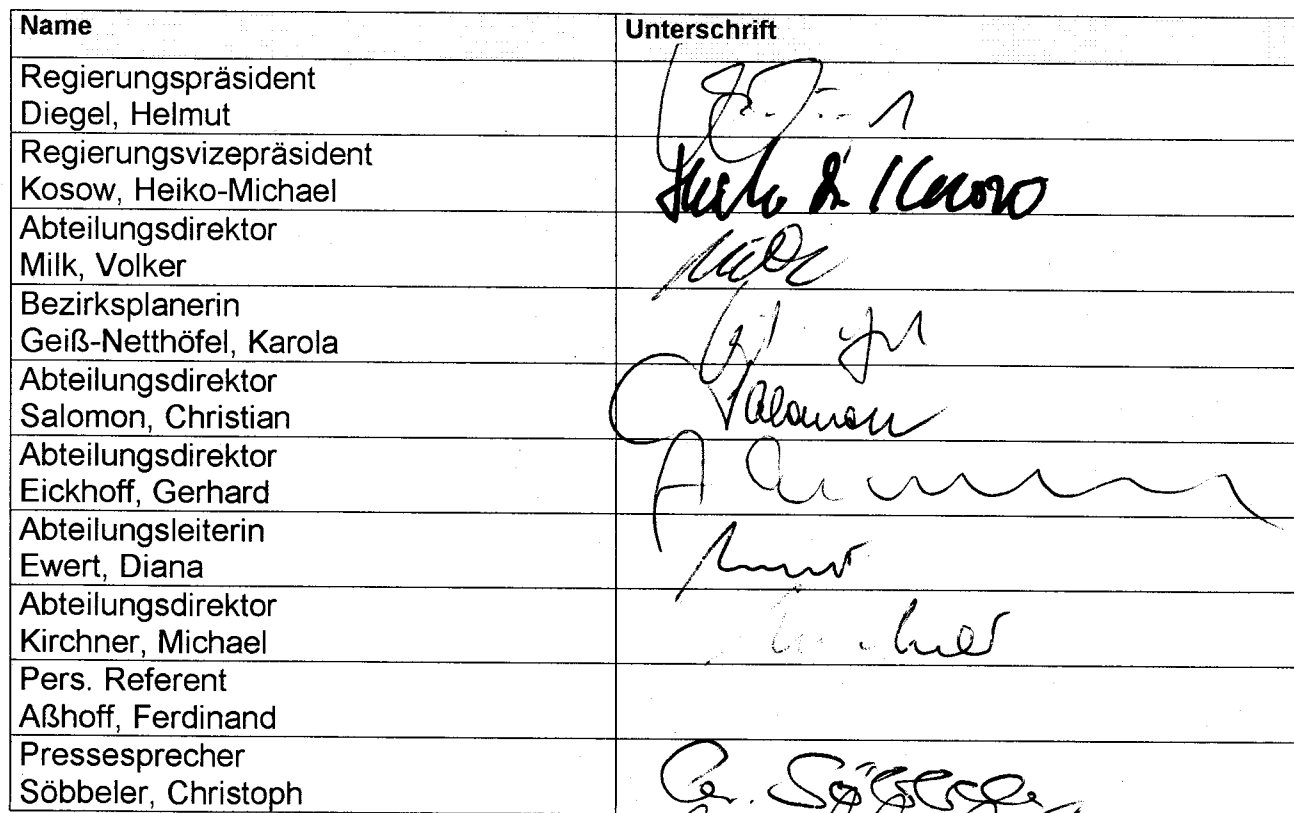 Name Unterschrift
Regierungspräsident
Diegel, Helmut
Regierungsvizepräsident
Kosow, Heiko-Michael
Abteilungsdirektor
Milk, Volker
Bezirksplanerin
Geiß-Netthöfel, Karola
Abteilungsdirektor
Salomon, Christian
Salomon
Abteilungsdirektor
Eickhoff, Gerhard
Abteilungsleiterin
Ewert, Diana
Abteilungsdirektor
Kirchner, Michael
Pers. Referent
Aßhoff, Ferdinand
Pressesprecher
Söbbeler, Christoph